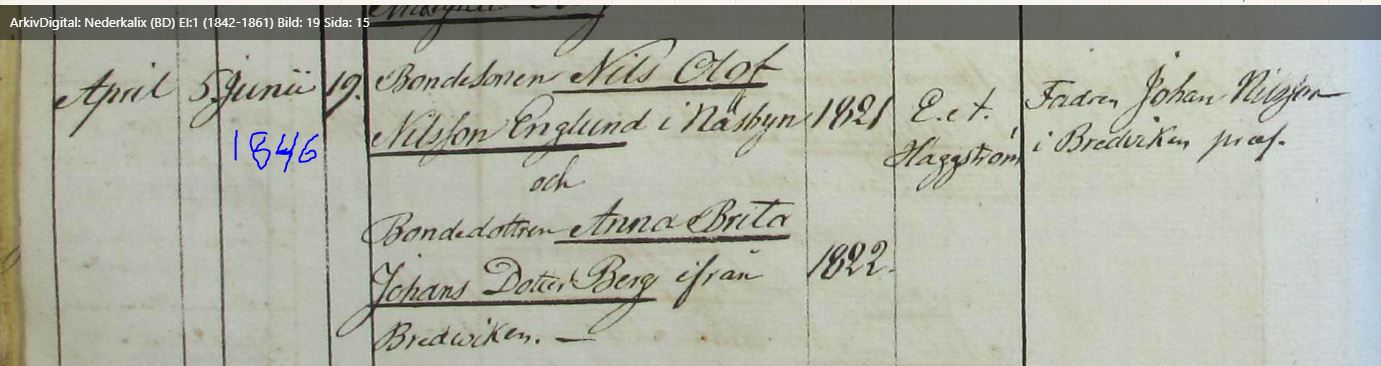 ArkivDigital: Nederkalix (BD) EI:1 (1842-1861) Bild: 19 Sida: 15
April 5 Junii 19. Bondesonen Nils Olof
1846
Nilsson Englund i Näsbyn 1821
och
Bondedottren Anna Brita
Johans Dotter Berg ifrån 1822.
Bredwiken. —
E. et.
Häggström
Fadren Johan Nilsson
i Bredviken præs.